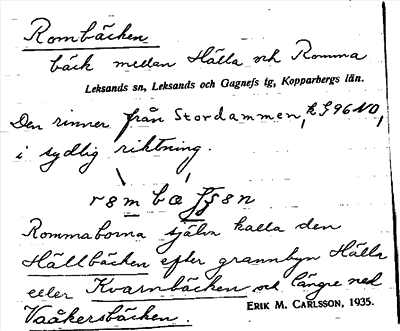 Rombäcken
bäck mellan Hälla och Romma
Leksands sn, Leksands och Gagnefs tg, Kopparbergs län.
Den rinner från Stordammen, k 596 NO,
i sydlig riktning.
Rommaborna själva kalla den
Hällbäcken efter grannbyn Hälla
eller Kvarnbäcken och längre ned
Vaåkersbäcken.
ERIK M. CARLSSON, 1935.